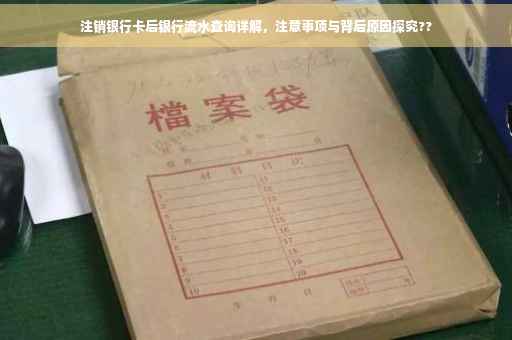 注销银行卡后银行流水查询详解，注意事项与背后原因探究??
檔案袋
材料目次
1
2
3
4
5
6
7
8
9
10
11
12
13
14
15
16
17
18
19
20
年 月 日